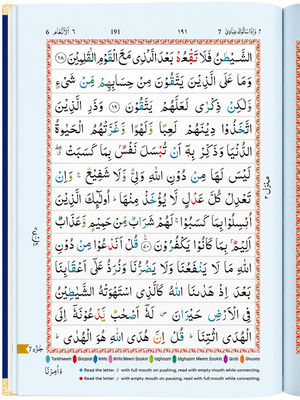 6 اَلْاَنْعَام ٦ 191 ١٩١ 7 وَاِذَا سَمِعُوْا ٧
الشَّيْطٰنُ فَلَا تَقْعُدْ بَعْدَ الذِّكْرٰى مَعَ الْقَوْمِ الظّٰلِمِيْنَ ﴿٦٨﴾
وَمَا عَلَى الَّذِيْنَ يَتَّقُوْنَ مِنْ حِسَابِهِمْ مِّنْ شَيْءٍ
وَّلٰكِنْ ذِكْرٰى لَعَلَّهُمْ يَتَّقُوْنَ ﴿٦٩﴾ وَذَرِ الَّذِيْنَ
اتَّخَذُوْا دِيْنَهُمْ لَعِبًا وَّلَهْوًا وَّغَرَّتْهُمُ الْحَيٰوةُ
الدُّنْيَا وَذَكِّرْ بِهٖٓ اَنْ تُبْسَلَ نَفْسٌۢ بِمَا كَسَبَتْ
لَيْسَ لَهَا مِنْ دُوْنِ اللّٰهِ وَلِيٌّ وَّلَا شَفِيْعٌ ۚ وَاِنْ
تَعْدِلْ كُلَّ عَدْلٍ لَّا يُؤْخَذْ مِنْهَا ؕ اُولٰٓئِكَ الَّذِيْنَ
اُبْسِلُوْا بِمَا كَسَبُوْا ۚ لَهُمْ شَرَابٌ مِّنْ حَمِيْمٍ وَّعَذَابٌ
اَلِيْمٌۢ بِمَا كَانُوْا يَكْفُرُوْنَ ﴿٧٠﴾ قُلْ اَنَدْعُوْا مِنْ دُوْنِ
اللّٰهِ مَا لَا يَنْفَعُنَا وَلَا يَضُرُّنَا وَنُرَدُّ عَلٰٓى اَعْقَابِنَا
بَعْدَ اِذْ هَدٰىنَا اللّٰهُ كَالَّذِي اسْتَهْوَتْهُ الشَّيٰطِيْنُ
فِي الْاَرْضِ حَيْرَانَ ۪ لَهٗٓ اَصْحٰبٌ يَّدْعُوْنَهٗٓ اِلَى
الْهُدَى ائْتِنَا ؕ قُلْ اِنَّ هُدَى اللّٰهِ هُوَ الْهُدٰى ؕ
منزل ٢
Tarkheem Qalqalah Ikhfa Ikhfa Meem Saakin Idghaam Idghaam Meem Saakin Qalb Ghunna
Read the letter with full mouth on pausing, read with empty mouth while connecting.
Read the letter with empty mouth on pausing, read with full mouth while connecting.
وَاُمِرْنَا